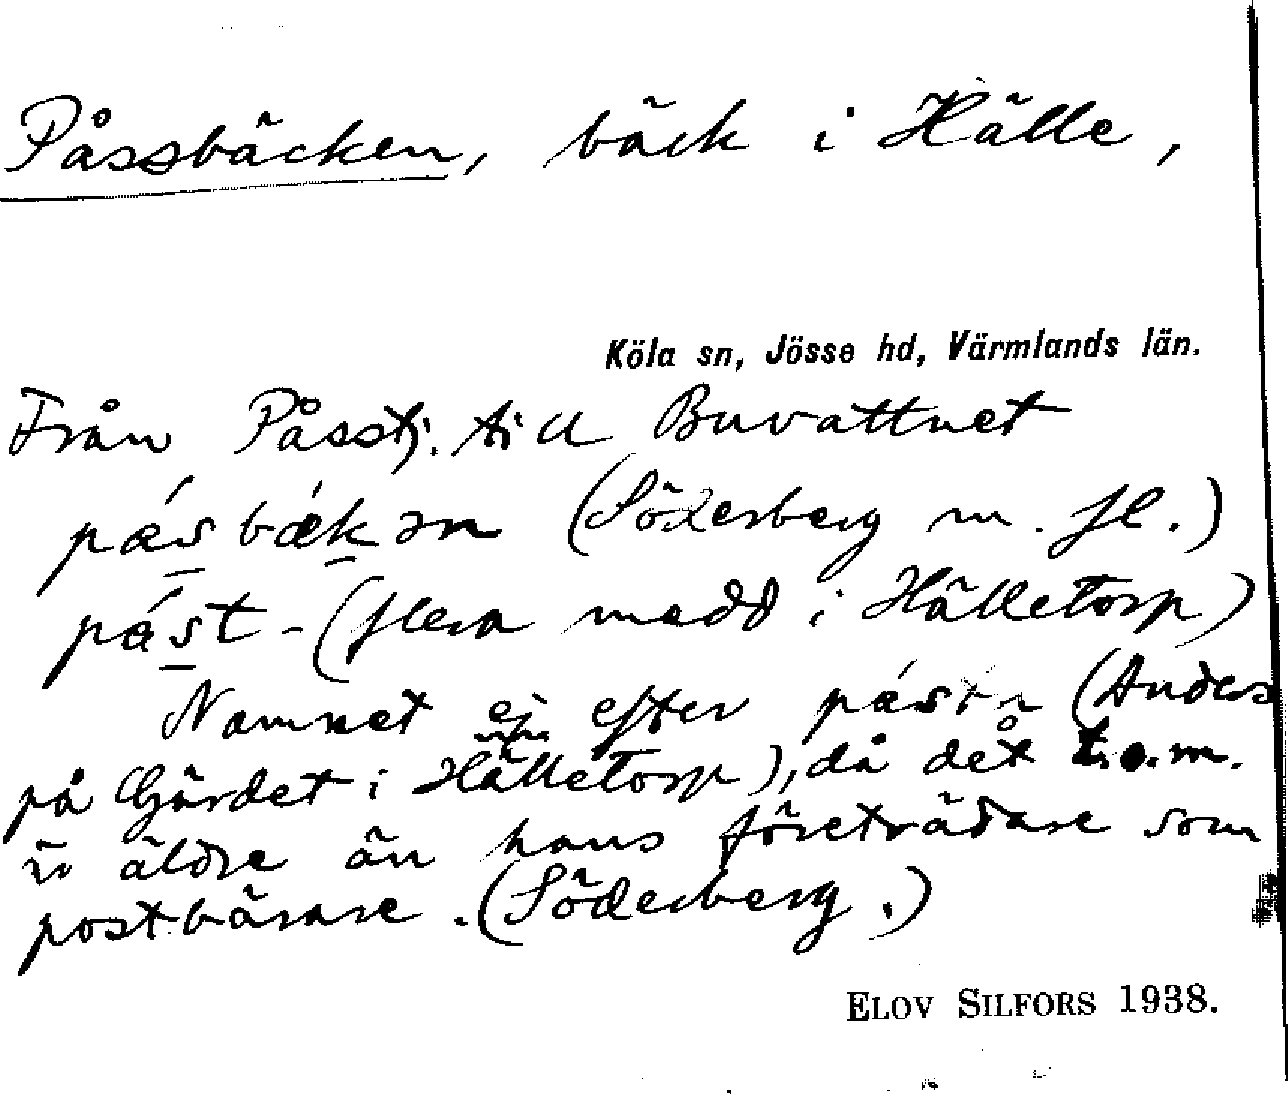 Påssbäcken, bäck i Hälle,
Köla sn, Jösse hd, Värmlands län.
Från Påsstj. till Buvattnet
pǽsbækən (Söderberg m. fl.)
pást- (flera medd i Hälletorp)
Namnet ej efter (Anders
på Gärdet i Hälletorp), då det t.o.m.
är äldre än hans företrädare som
postbärare. (Söderberg.)
ELOV SILFORS 1938.